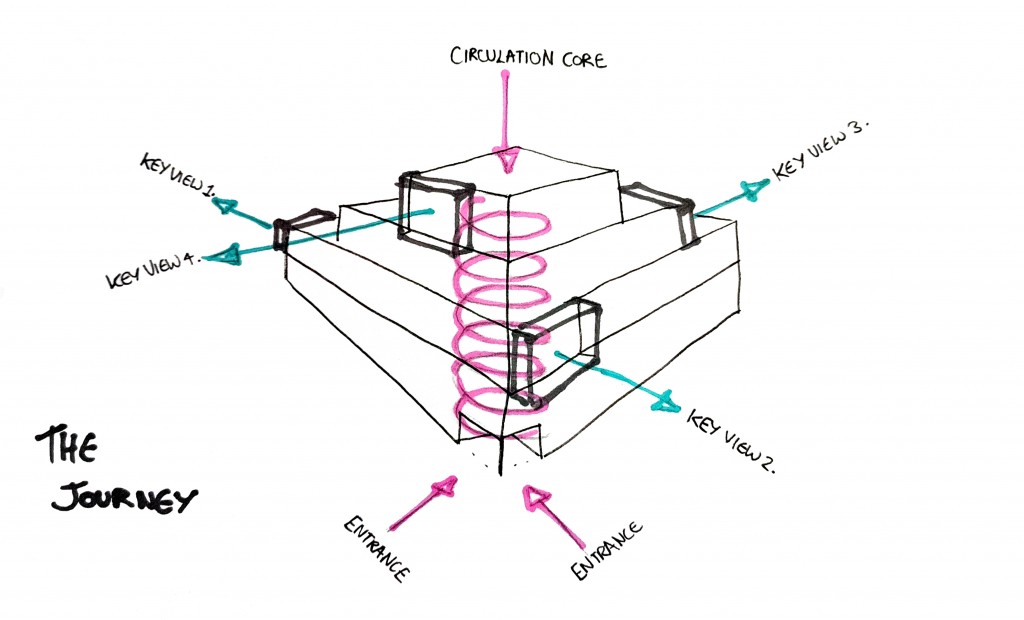 CIRCULATION CORE
KEY VIEW 1.
KEY VIEW 3.
KEY VIEW 4.
KEY VIEW 2.
THE
JOURNEY
ENTRANCE
ENTRANCE